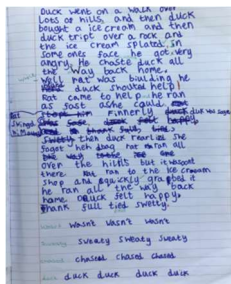 Duck went on a walk over
Lots of hills, and then duck
bought a ice cream and then
duck tript over a rock and
the ice cream splated in
some one face he got very
angry. He chaste dull all
the way back home.
Well Rat was biulding he
duck shouted help!
Rat came to help he ran
as fast ashe could.
Finnerly duck was safe
Swetty then duck rearlise she
fogot heh bag rat ran all
the way
over the hills but it was not
there. Rat ran to the ice cream
shop and squickly grabbed it
he ran all the way back
home. Duck felt happy,
thank full tied swetty.
wasn't wasn't wasn't
sweaty sweaty sweaty
chased chased chased
duck duck duck duck